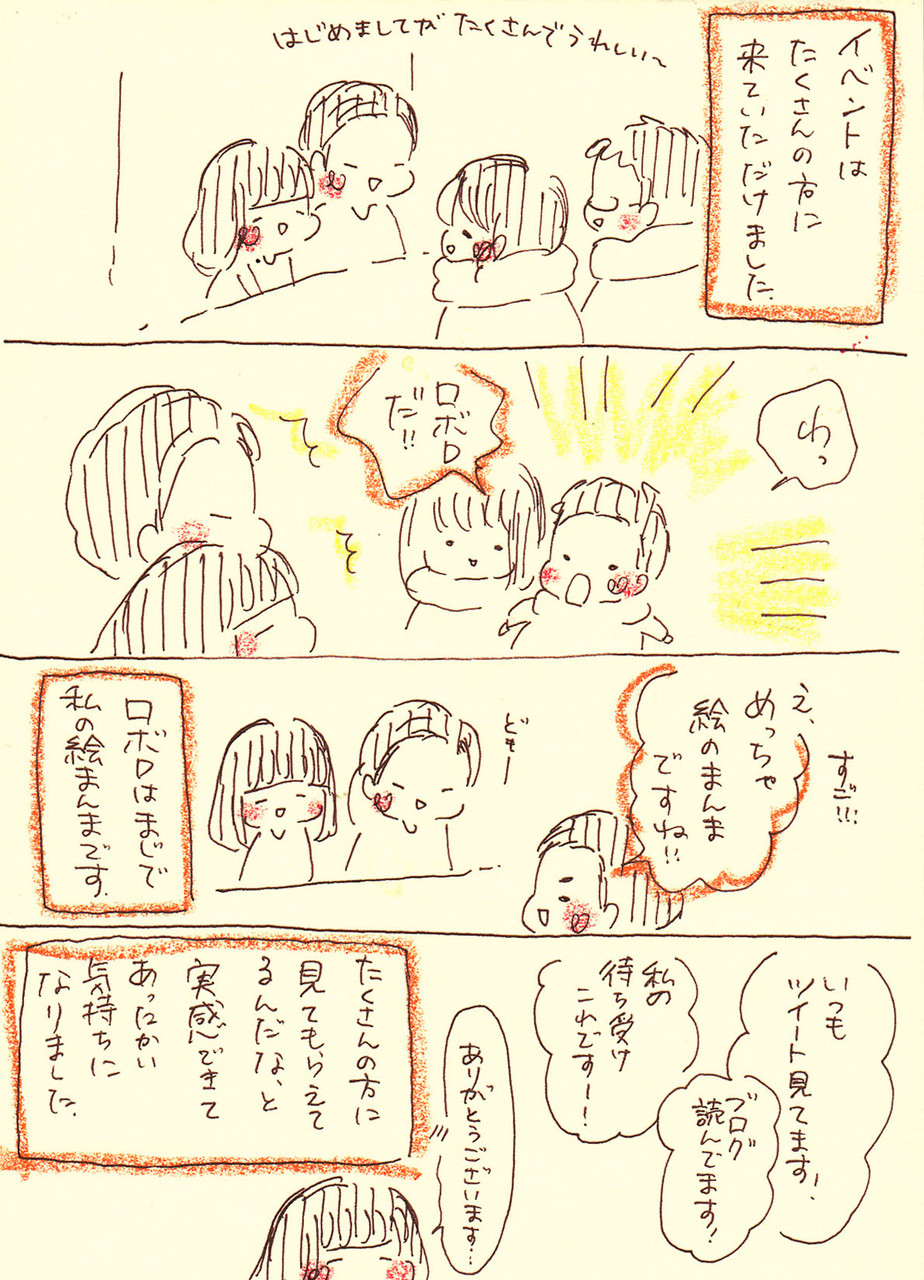 イベントは
たくさんの方に
来ていただけました。
はじめましてが たくさんでうれしい〜
わっ
ロボロ
だ!!
え、
めっちゃ
絵のまんま
ですね!!
すご!!!
ども〜
ロボロはまじで
私の絵まんまです。
いつも
ツイート見てます!
ブログ
読んでます!
私の
待ち受け
これです〜!
ありがとうございます…
たくさんの方に
見てもらえて
るんだな、と
実感できて
あったかい
気持ちに
なりました。